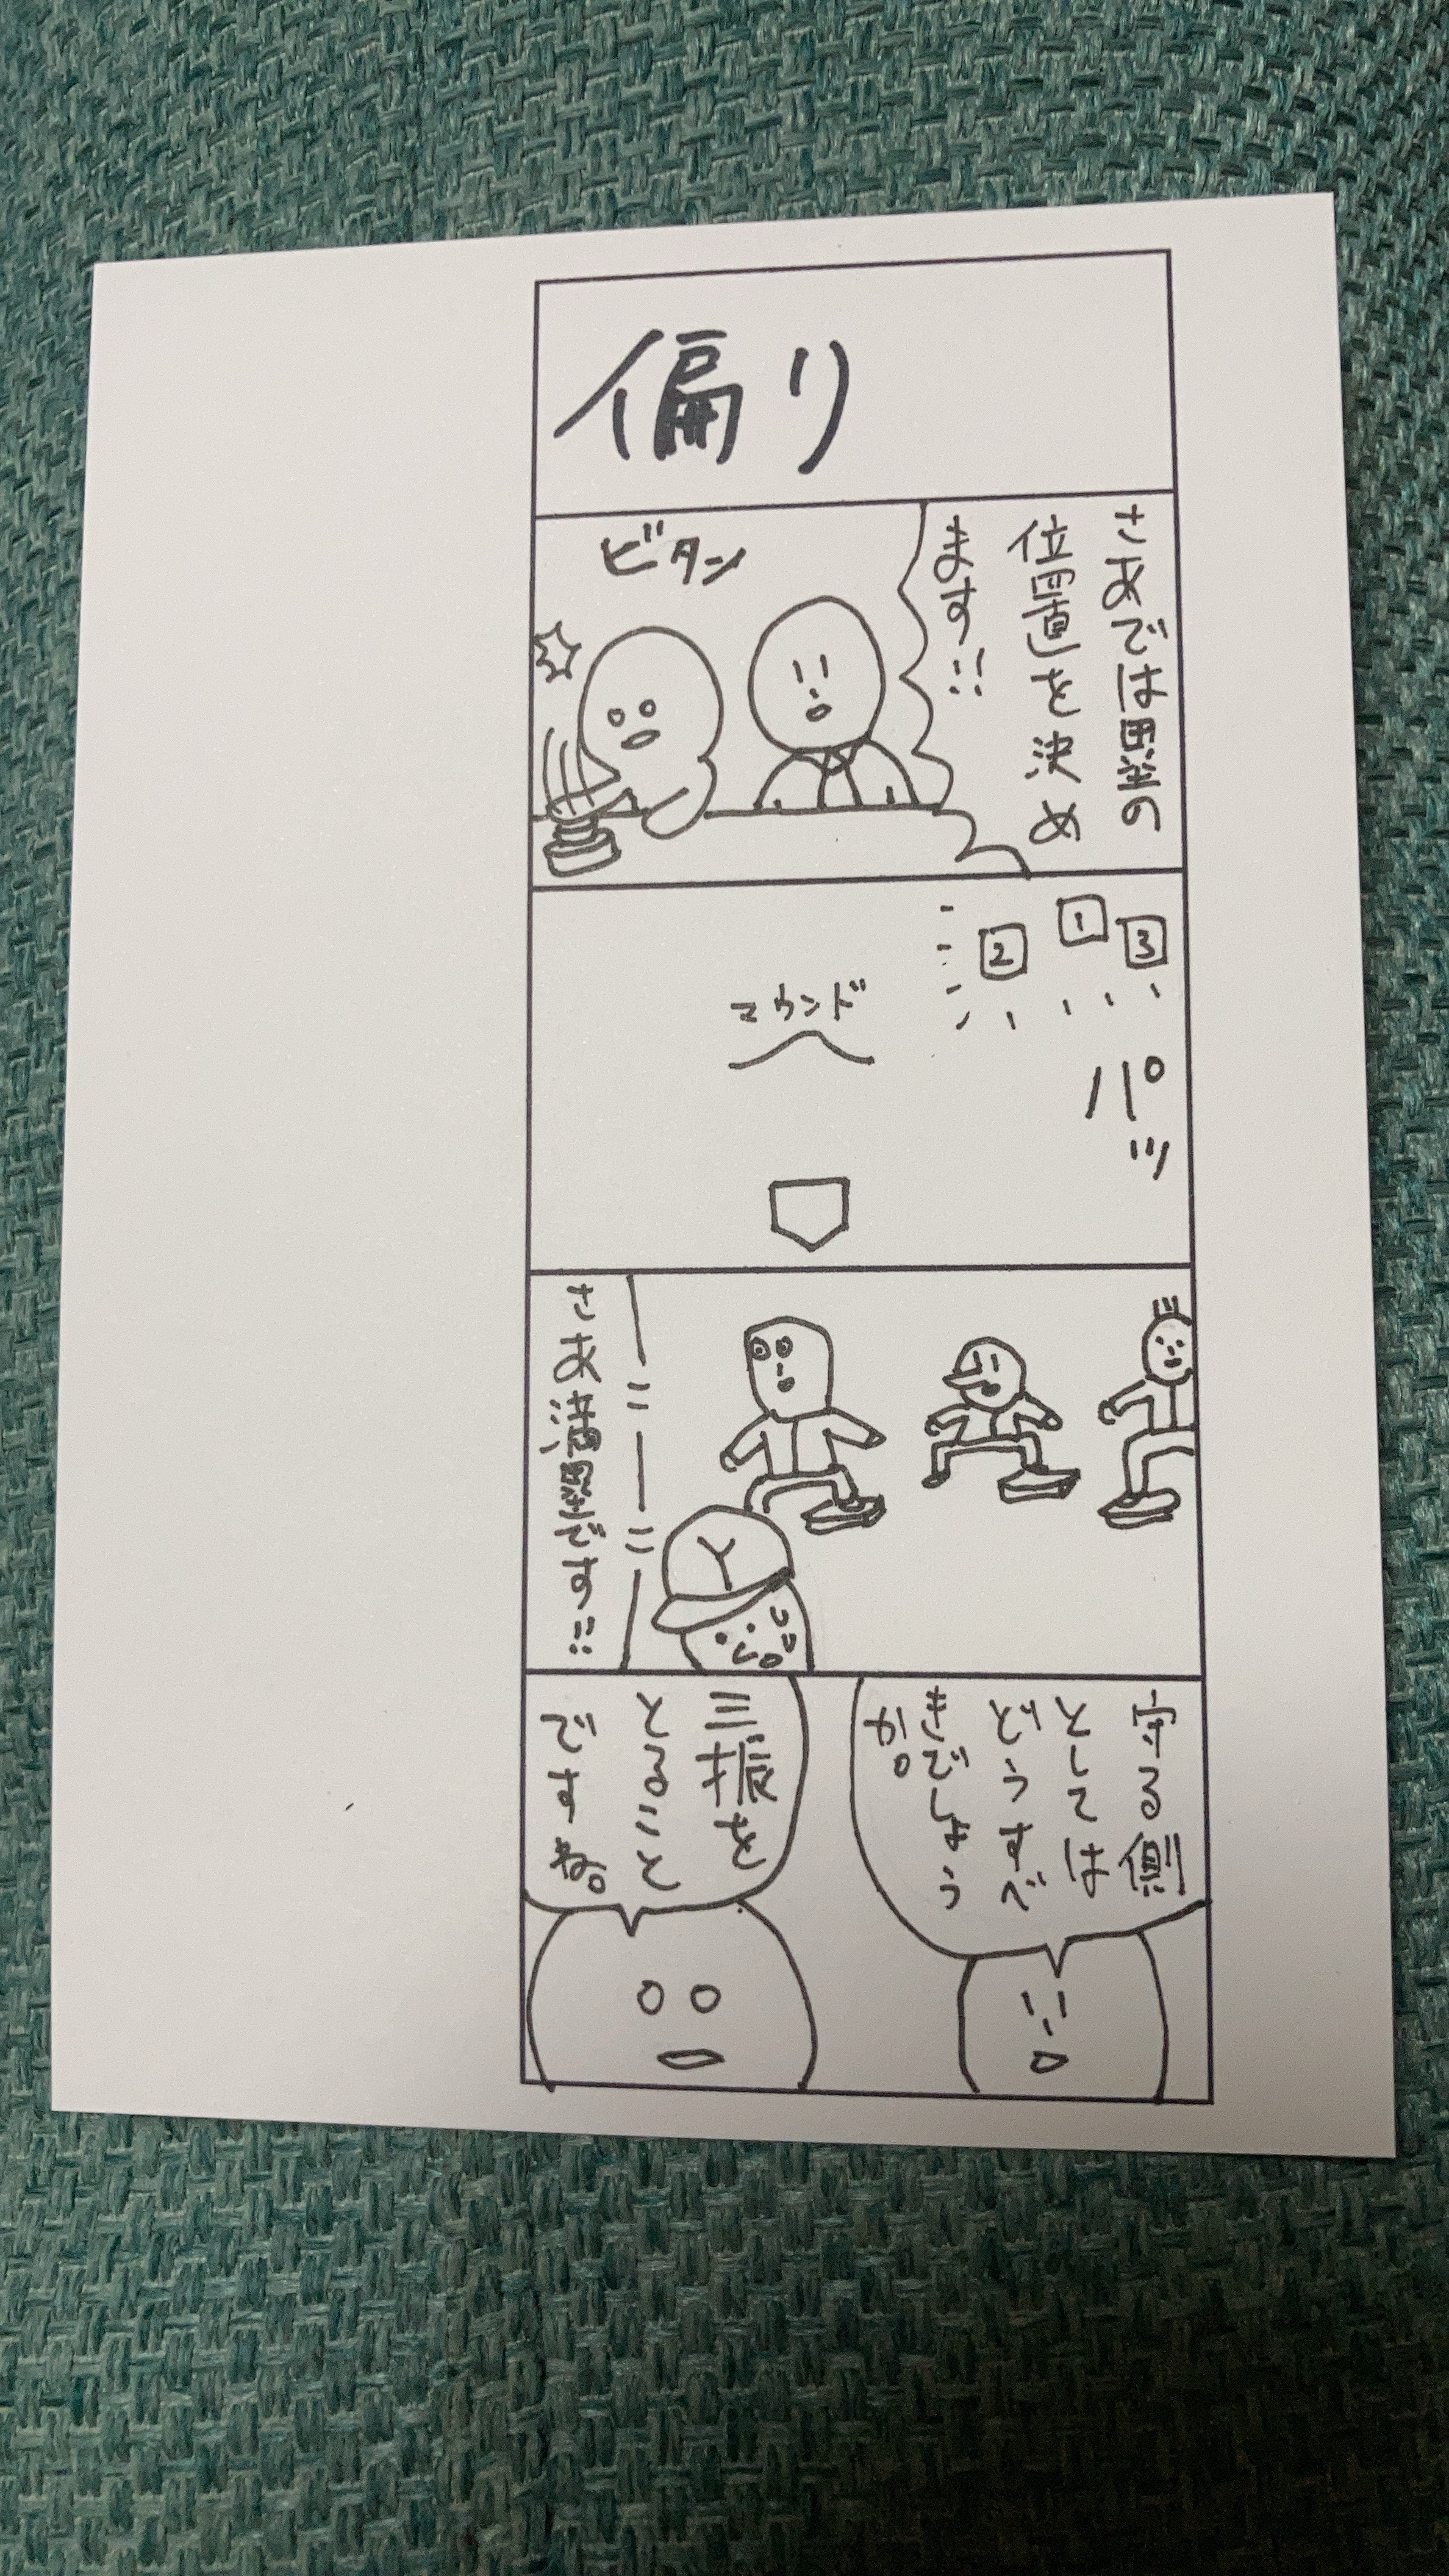 偏り
さあでは塁の
位置を決め
ます!!
ビタン
3
1
2
パッ
マウンド
さあ満塁です!!
Y
守る側
としては
どうすべ
きでしょう
か。
三振を
とること
ですね。